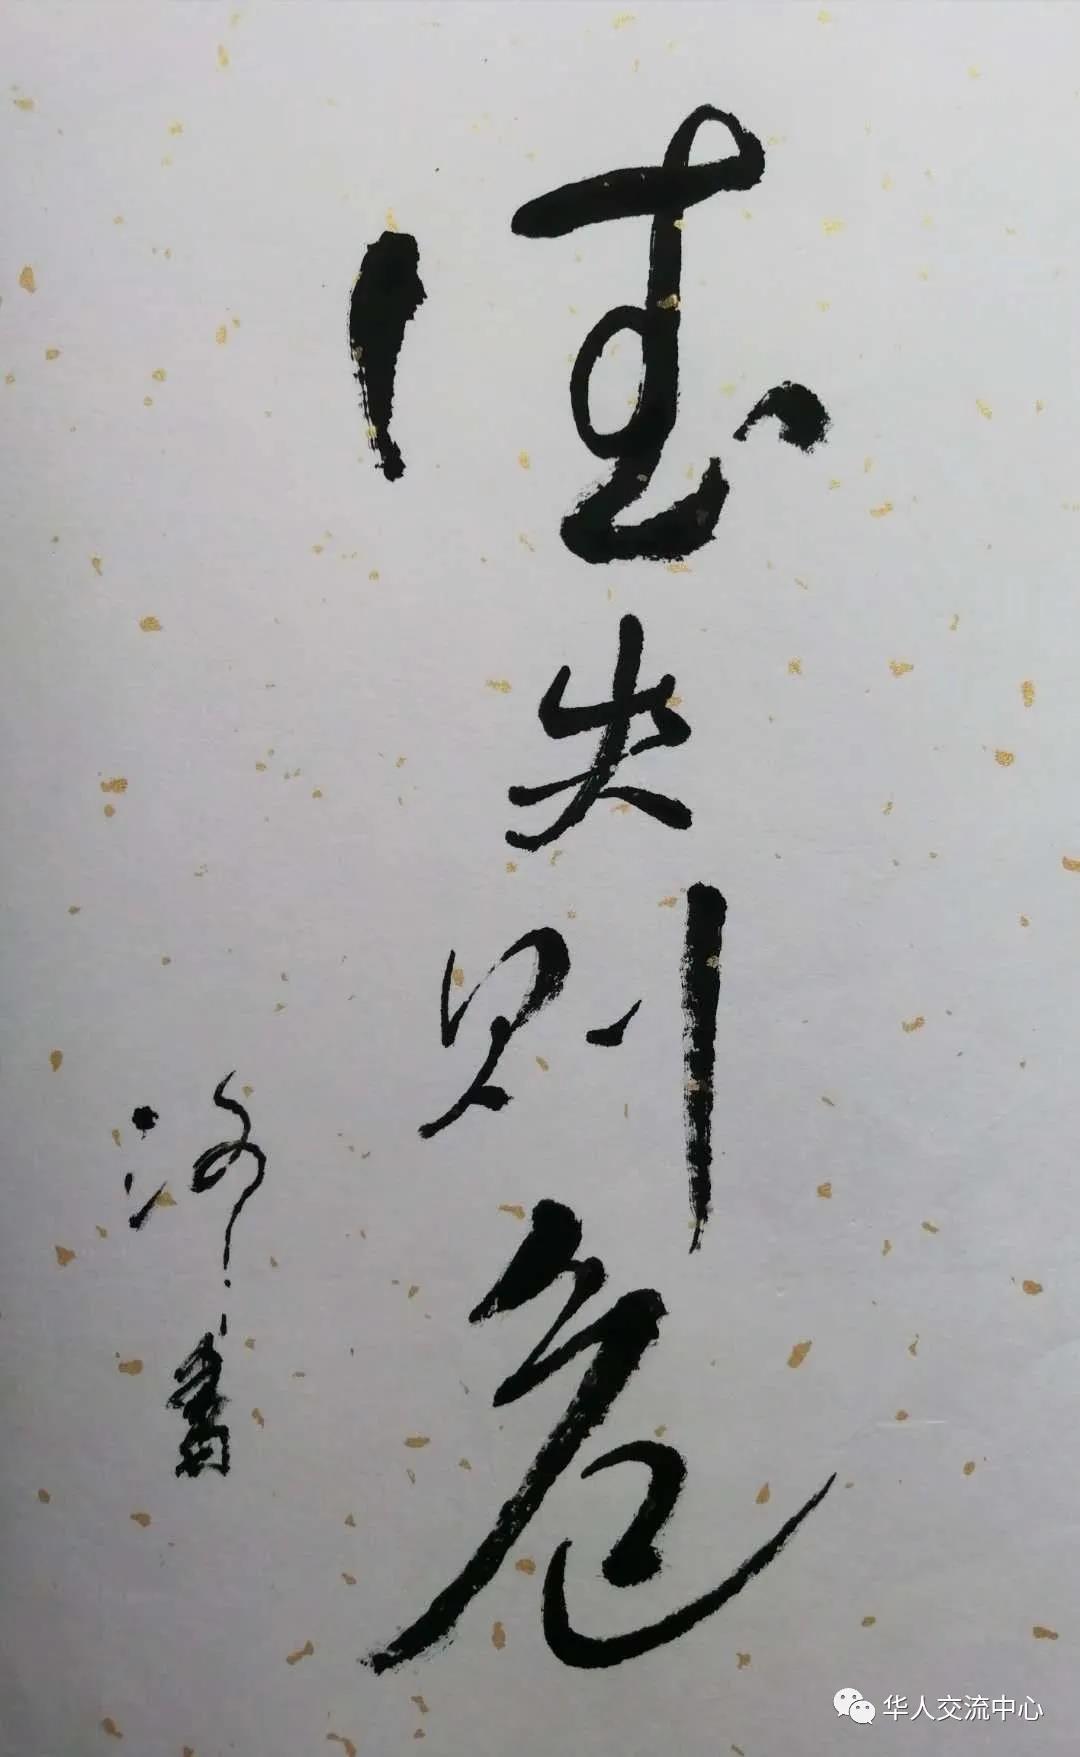 德失则危
洛书
华人交流中心